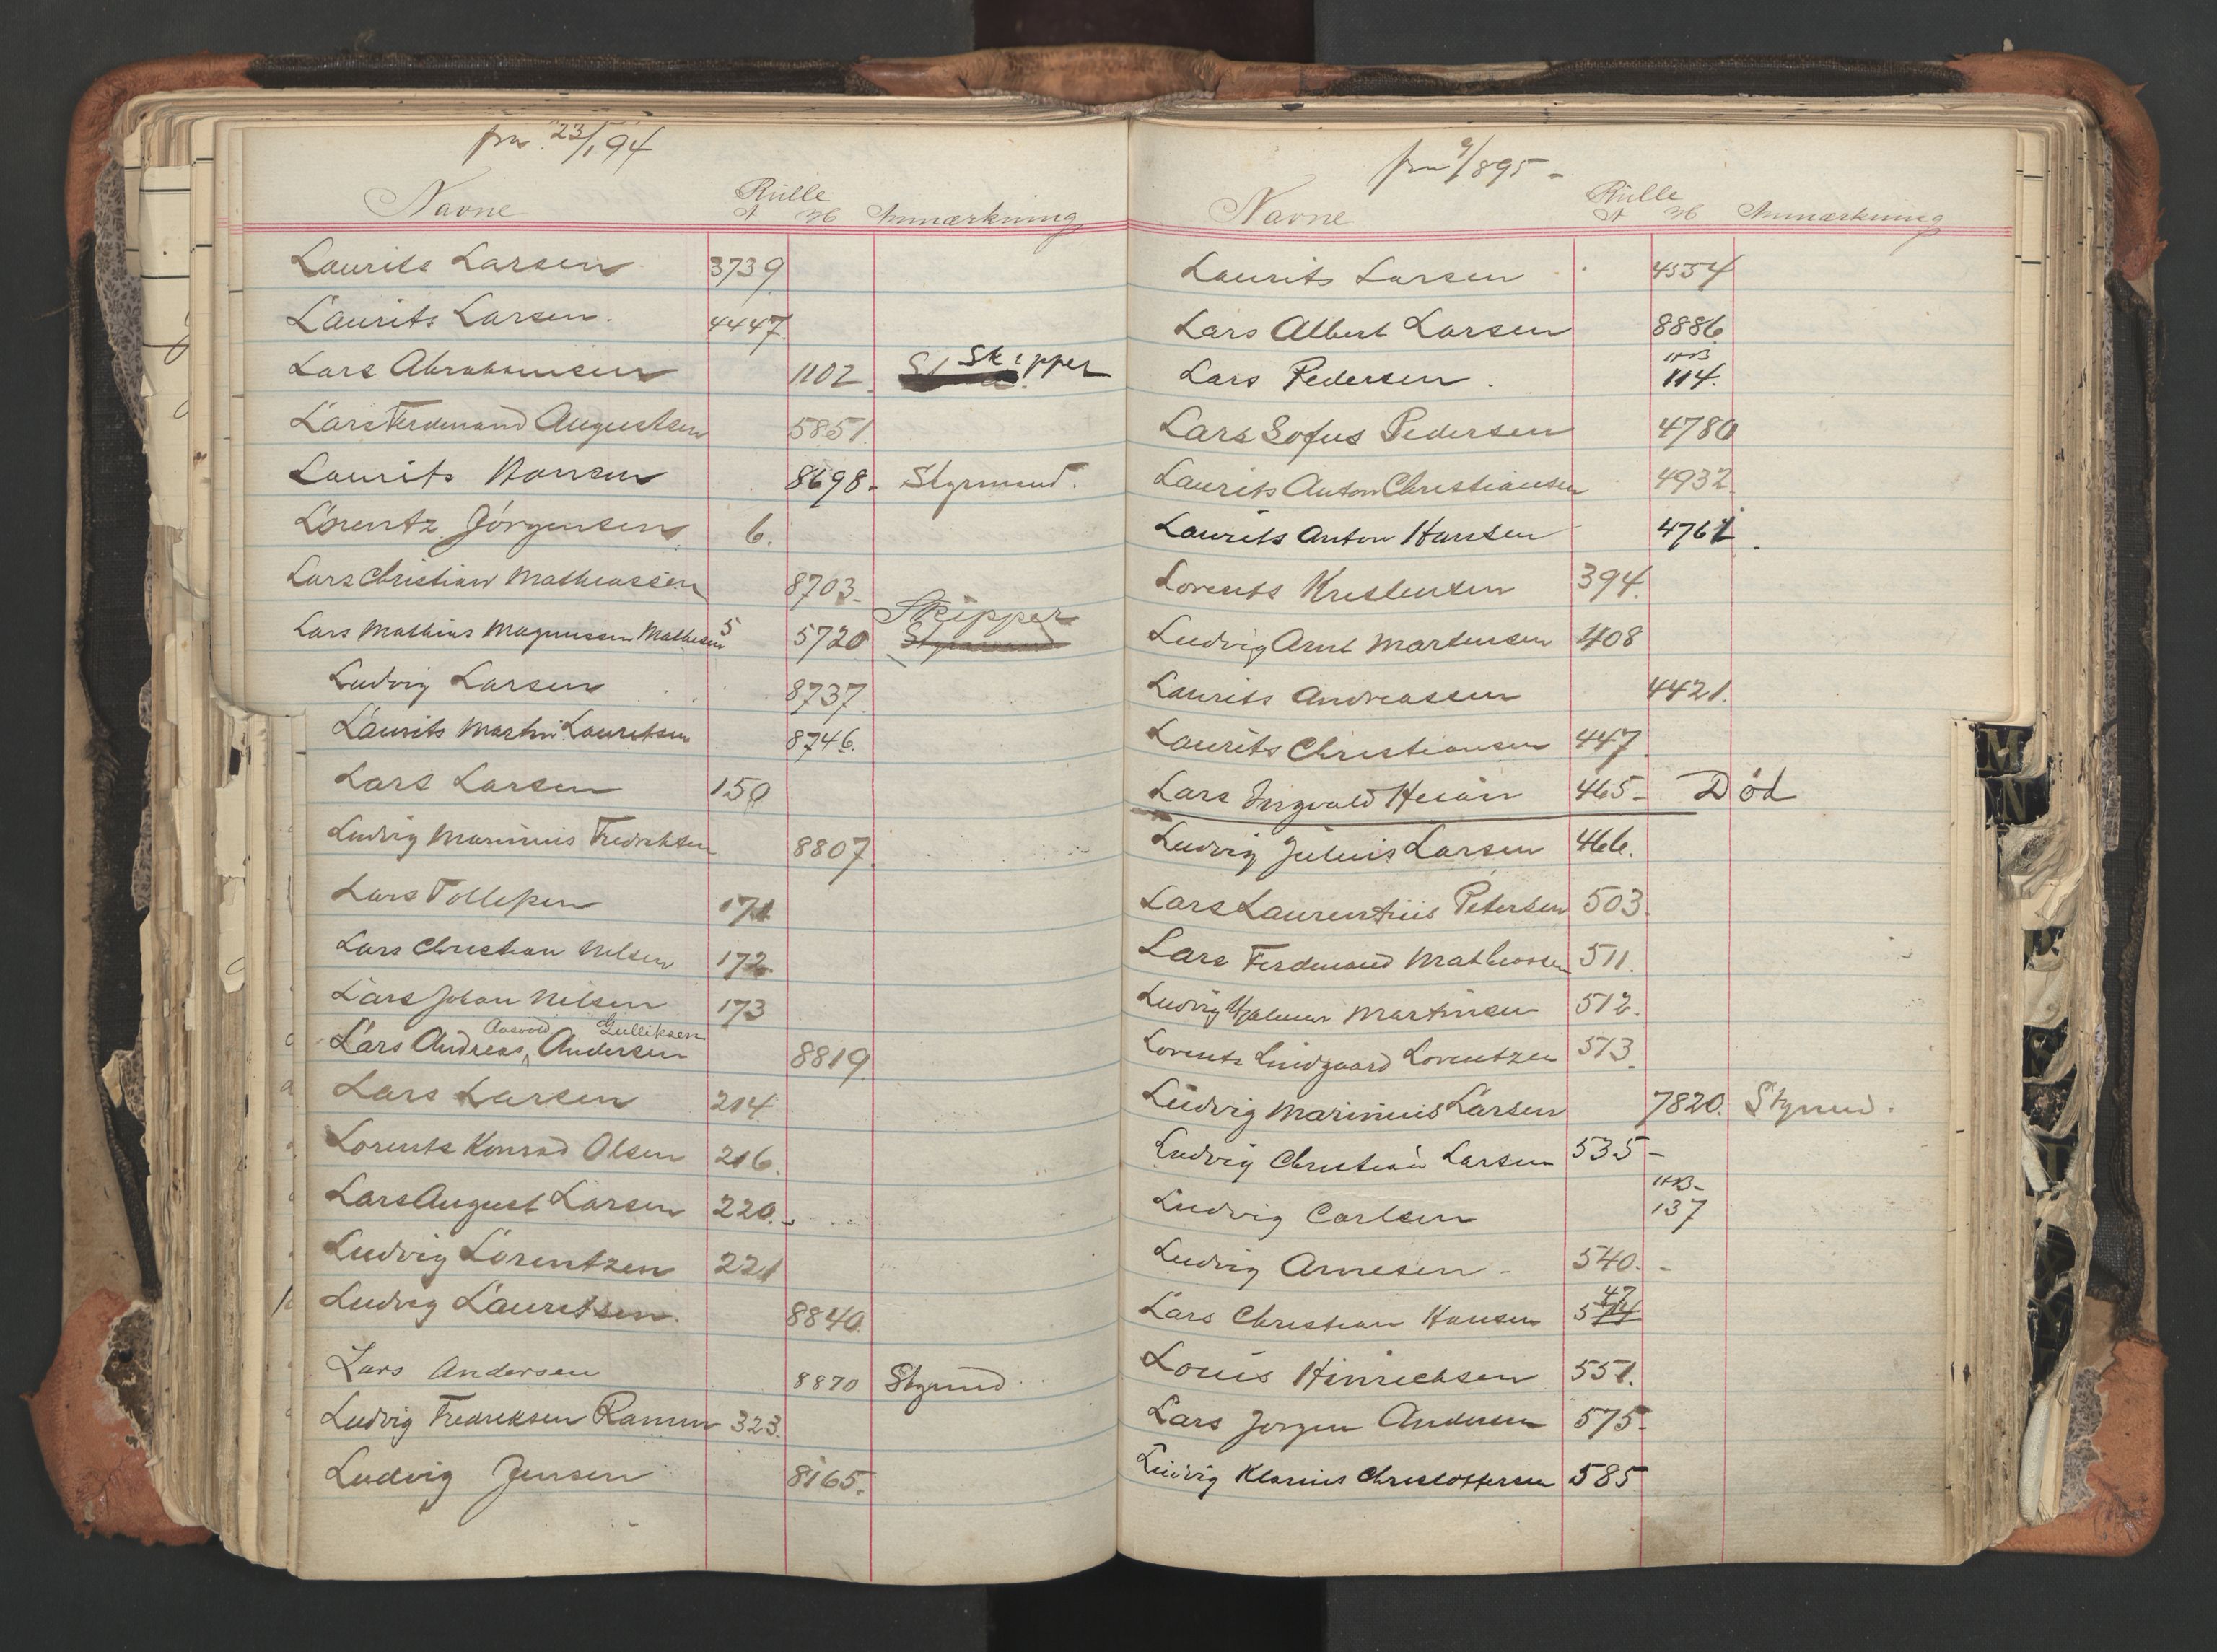 fra 23/1 94
Navne Rulle A H Anmærkning
Laurits Larsen 3739
Laurits Larsen. 4447
Lars Abrahamsen 1102. Skipper
Lars Ferdinand Augustsen 5851.
Laurits Hansen 8698- Styrmand.
Lorentz Jörgensen 6.
Lars Christian Matheassen 8703-
Skipper
Lars Mathias Magnussen Mathesen 5 5720 Styrmand
Ludvig Larsen 8737
Laurits Martin Lauritsen 8746.
Lars Larsen 150
Ludvig Marinius Fredriksen 8807.
Lars Tollefsen 171
Lars Christian Nilsen 172
Lars Johan Nilsen 173
Aasvold Gulliksen
Lars Andreas Andersen 8819
Lars Larsen 214
Lorents Konrad Olsen 216.
Lars August Larsen 220.-
Ludvig Lorentzen 221
Ludvig Lauritsen. 8840
Lars Andersen 8870 Stymd
Ludvig Fredriksen Ramm 323.
Ludvig Jensen 8165.
fra 9/1 895 -
Navne Rulle A H Anmærkning
Laurits Larsen 4554
Lars Albert Larsen 8886
HB
Lars Pedersen. 114.
Lars Sofus Pedersen 4780
Laurits Anton Christiansen 4932
Laurits Anton Hansen 4761.
Lorents Kristensen 394.
Ludvig Arnt Martensen 408
Laurits Andreassen 4421.
Laurits Christiansen 447
Lars Ingvald 465- Död
Ludvig Julius Larsen 466.
Lars Laurentius Petersen 503.
Lars Ferdinand Matheassen 511.
Ludvig Hjalmar Martinsen 512.
Lorents Lindgaard Lorentzen 513.
Ludvig Marinius Larsen 7820. Stymd.
Ludvig Christian Larsen 535-
HB-
Ludvig Carlsen 137
Ludvig Arnesen - 540. -
47
Lars Christian Hansen 544
Louis Hinrichsen 551.
Lars Jorgen Andersen 575-
Ludvig Klarius Christoffersen 585
M
N